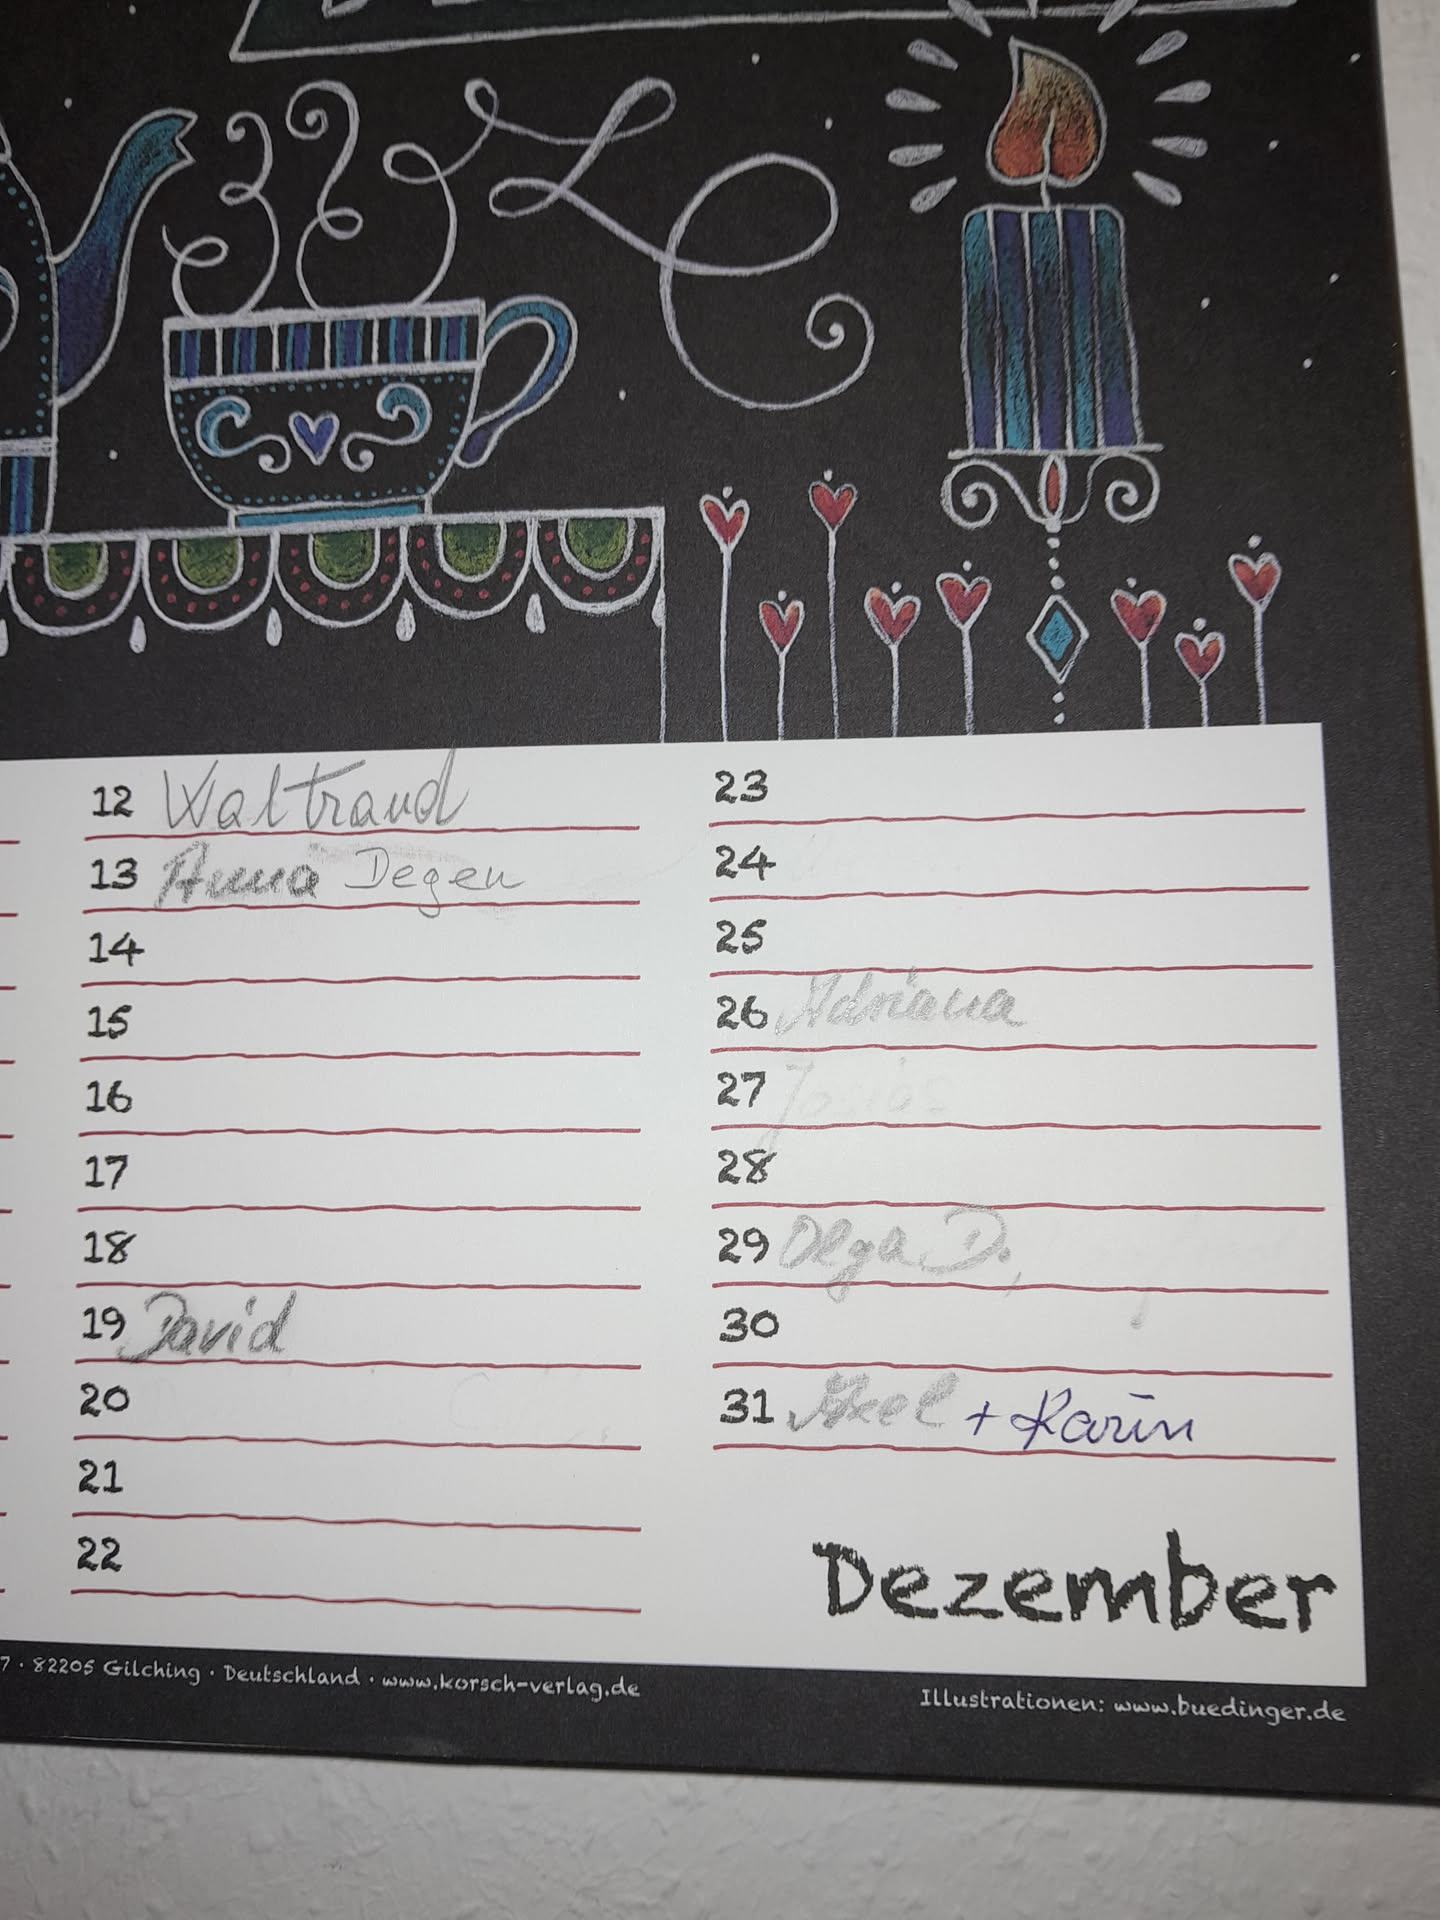 12 Waltraud
13 Anna Degen
14
15
16
17
18
19 David
20
21
22
23
24
25
26 Adriana
27 Josias
28
29 Olga D.
30
31 Axel + Karin
Dezember
7 · 82205 Gilching · Deutschland · www.korsch-verlag.de
Illustrationen: www.buedinger.de